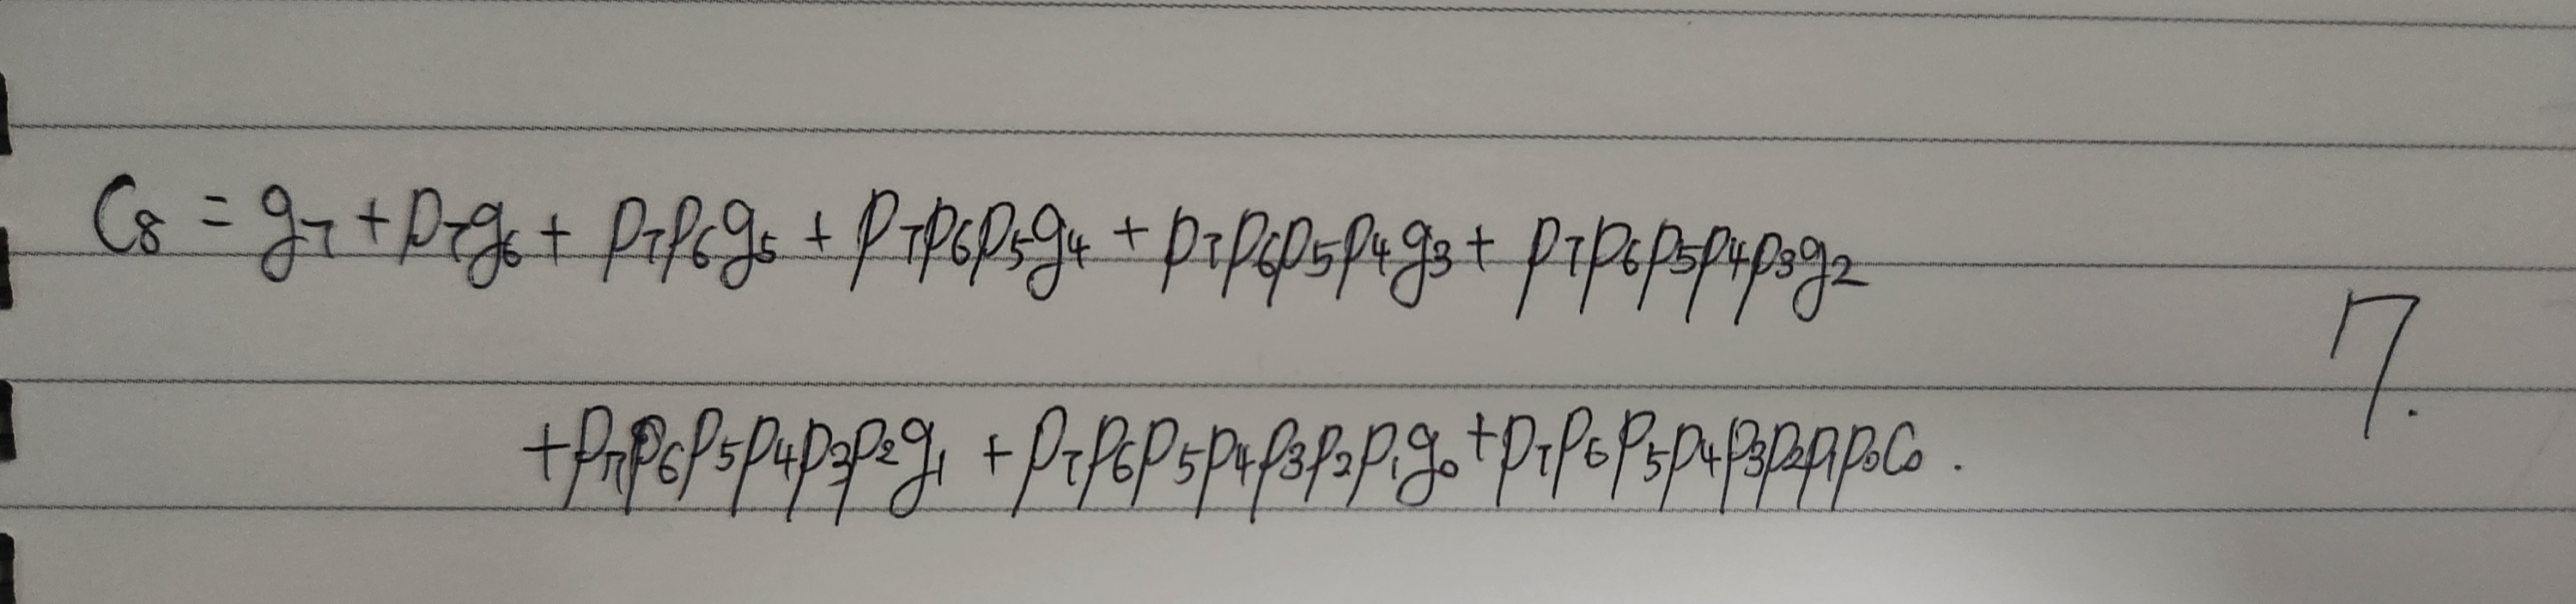 C₈ = g₇ + p₇g₆ + p₇p₆g₅ + p₇p₆p₅g₄ + p₇p₆p₅p₄g₃ + p₇p₆p₅p₄p₃g₂
7.
+ p₇p₆p₅p₄p₃p₂g₁ + p₇p₆p₅p₄p₃p₂p₁g₀ + p₇p₆p₅p₄p₃p₂p₁p₀C₀ .